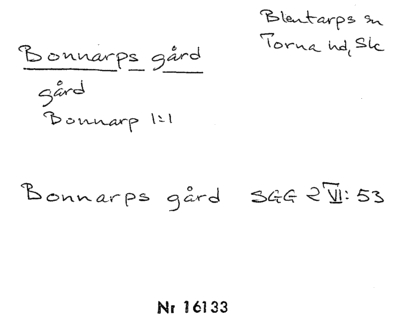 Blentarps sn
Torna hd, Sk
Bonnarps gård
gård
Bonnarp 1:1
Bonnarps gård SGG 2 VI: 53
Nr 16133